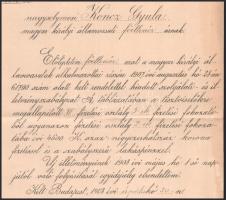 nagyságos Koncz Gyula
magyar királyi államvasuti főellenőr úrnak.
Előléptem főellenőr mint a magyar királyi ál-
lamvasutak alkalmazottai részére 1907. évi augusztus hó 28-án
kelt rendelettel kiadott szolgálati- és il-
letményszabályzat A. táblázatában a tisztviselőkre
megállapított III. fizetési osztály 3-ik fizetési fokozatá-
ból ugyanazon fizetési osztály 2-ik fizetési fokoza-
tába évi 4400 korona
fizetéssel és a szabályszerű lakáspénzzel.
Uj illetményeinek 1908 évi május hó 1-től nap-
jától való folyósítását egyidejűleg elrendeltem.
Kelt Budapest, 1908 évi április hó 30-án